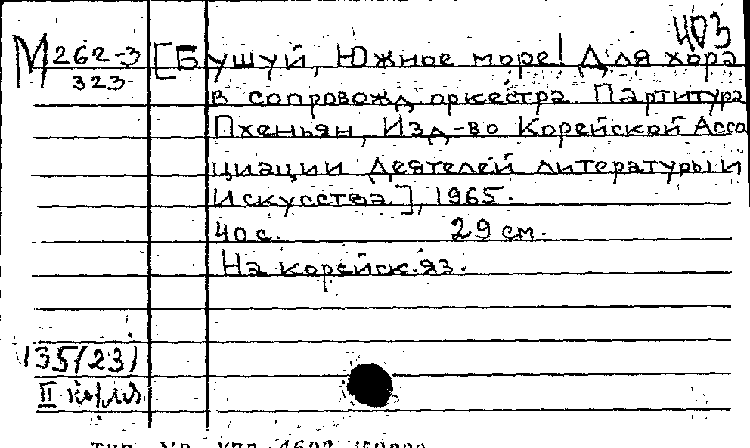 403
М 262-3 [Бушуй, Южное море! Для хора
323
в сопровожд. оркестра. Партитура
Пхеньян, Изд-во Корейской Ассо
циации деятелей литературы и
искусства], 1965.
40 с. 29 см.
На корейск. яз.
135(23)
II